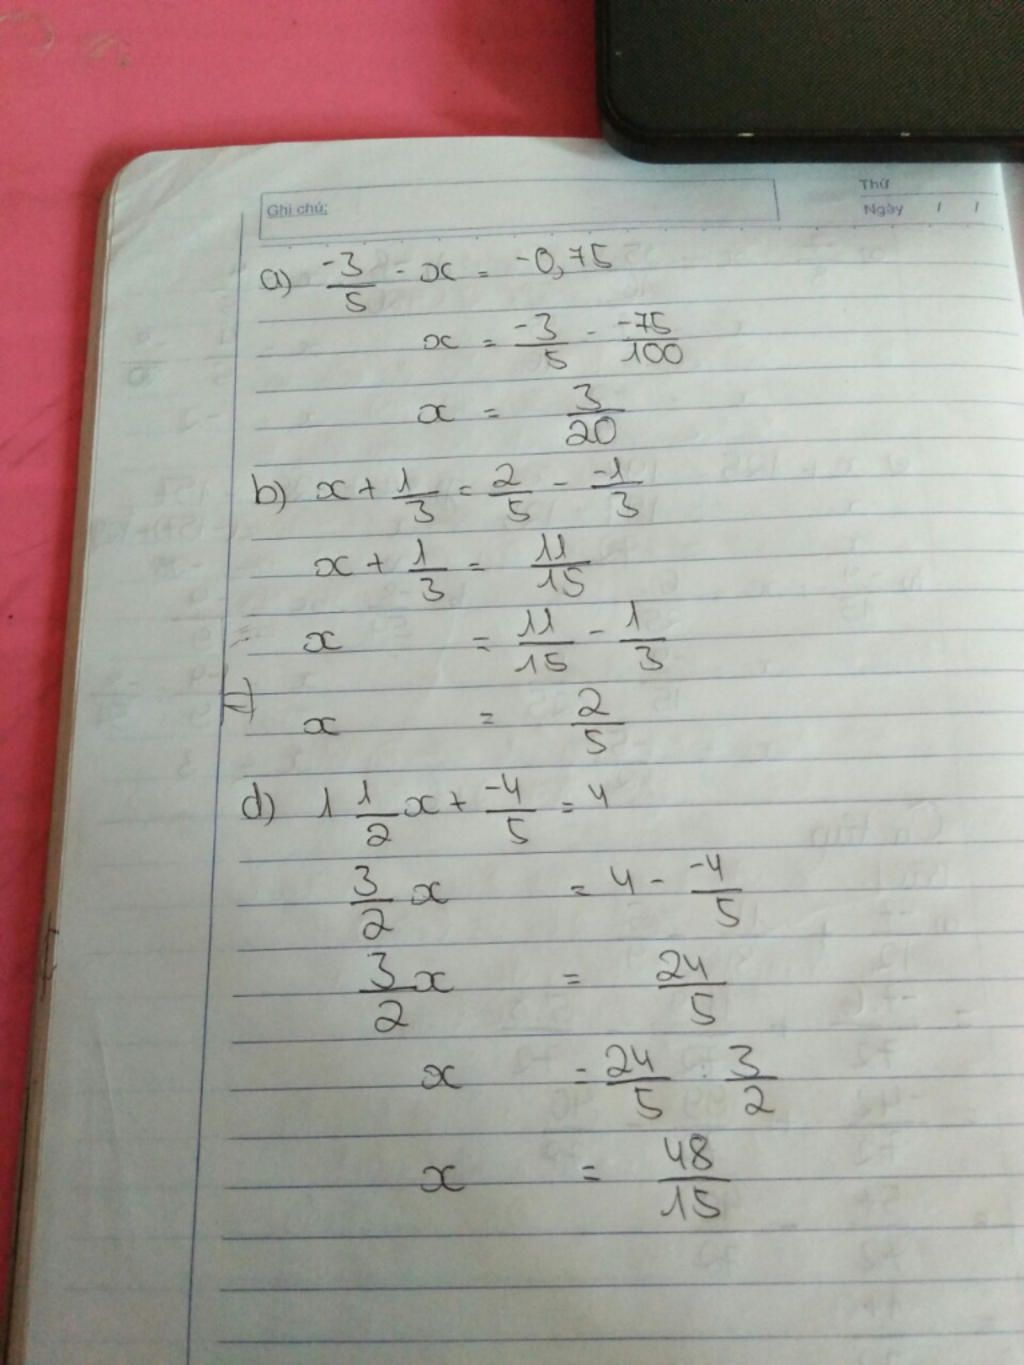 Ghi chú:
Thứ
Ngày / /
a) -3/5 - x = -0,75
x = -3/5 - -75/100
x = 3/20
b) x + 1/3 = 2/5 - -1/3
x + 1/3 = 11/15
x = 11/15 - 1/3
x = 2/5
d) 1 1/2 x + -4/5 = 4
3/2 x = 4 - -4/5
3/2 x = 24/5
x = 24/5 : 3/2
x = 48/15